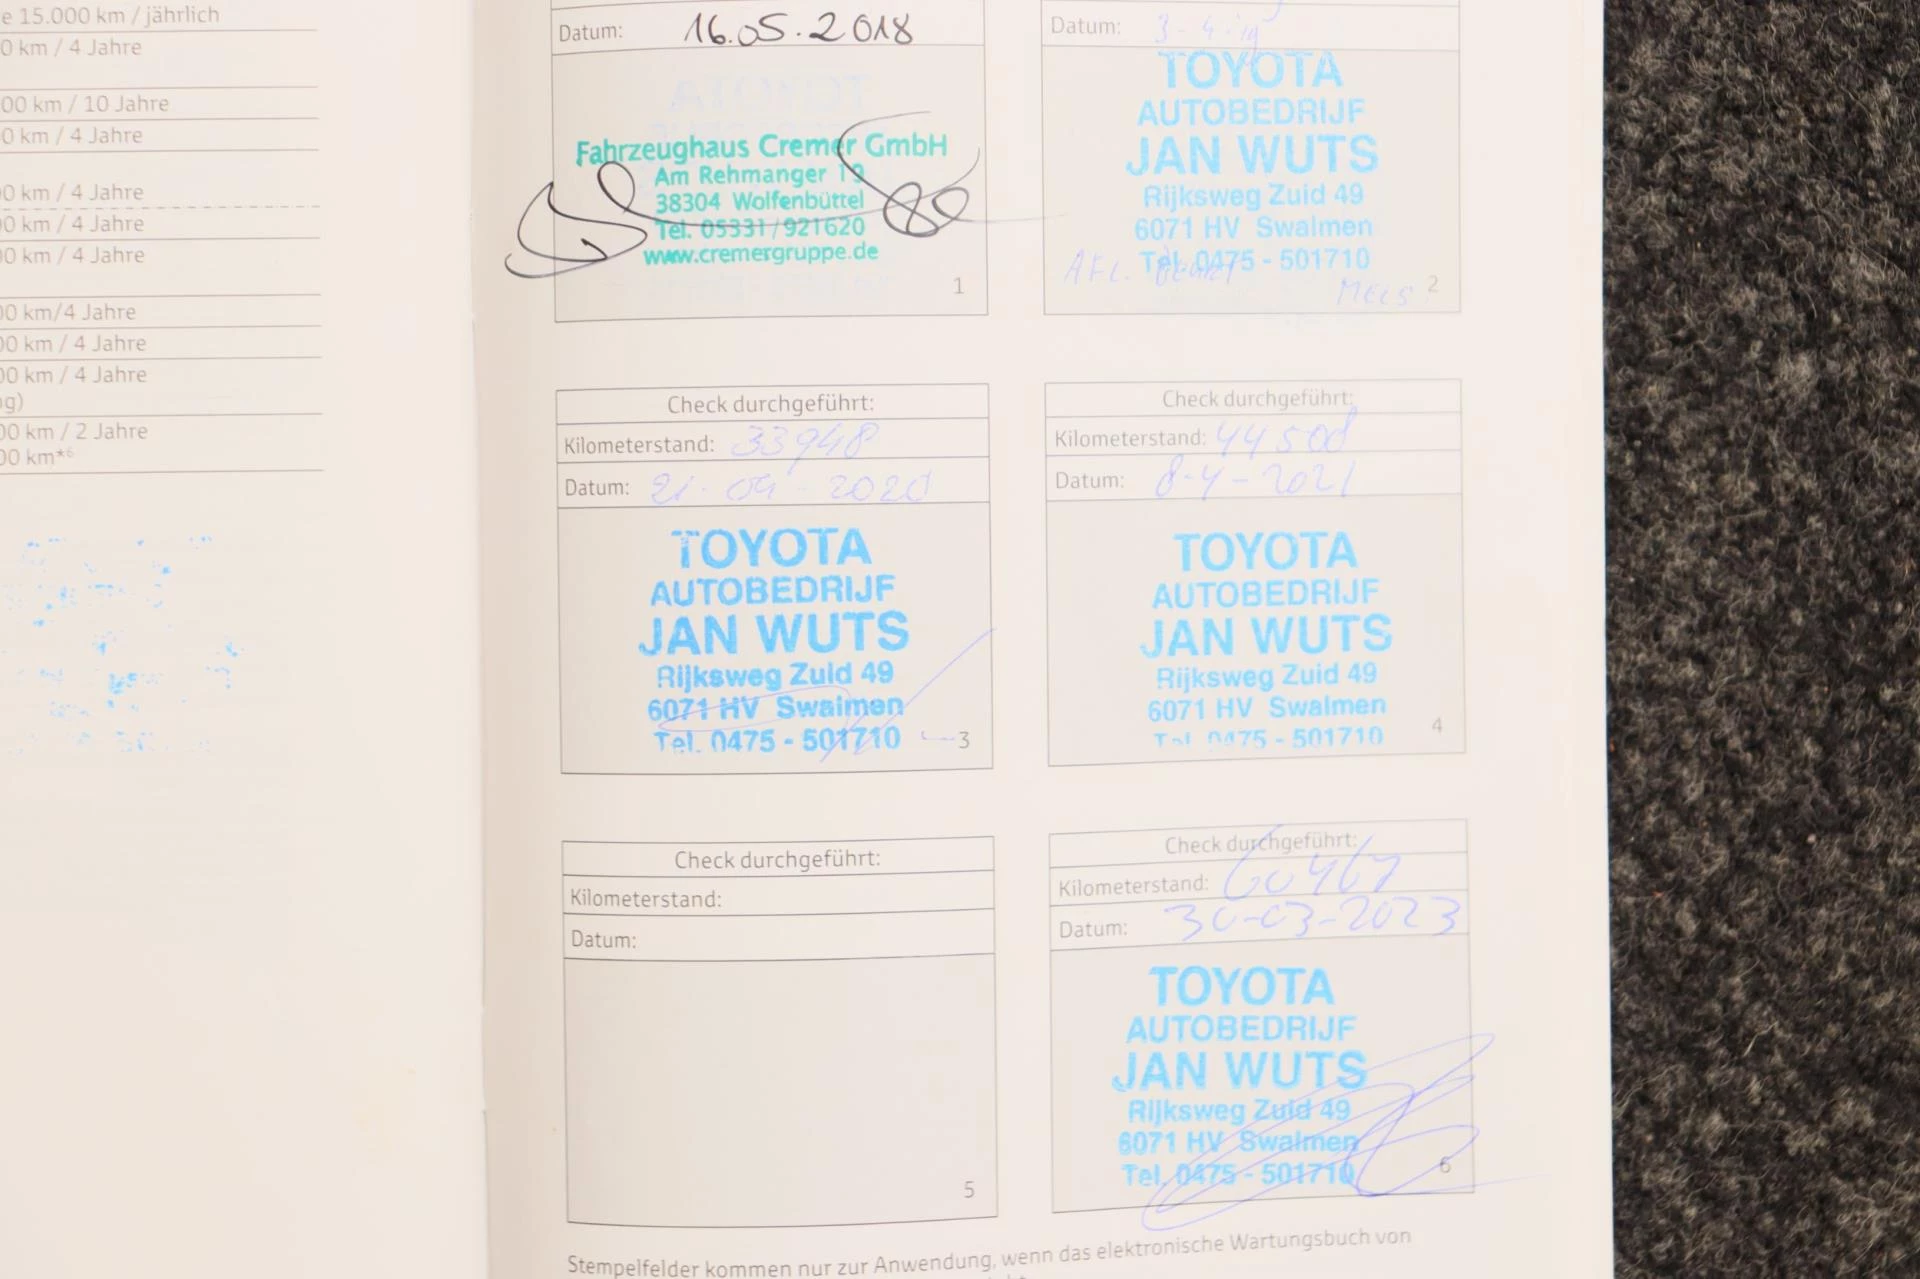 e 15.000 km / jährlich
0 km / 4 Jahre
00 km / 10 Jahre
0 km / 4 Jahre
00 km / 4 Jahre
00 km / 4 Jahre
00 km / 4 Jahre
00 km/4 Jahre
00 km / 4 Jahre
00 km / 4 Jahre
ng)
00 km / 2 Jahre
00 km*6
Datum: 16.05.2018
Fahrzeughaus Cremer GmbH
Am Rehmanger 19
38304 Wolfenbüttel
Tel. 05331/921620
www.cremergruppe.de
1
Datum: 3-4-19
TOYOTA
AUTOBEDRIJF
JAN WUTS
Rijksweg Zuid 49
6071 HV Swalmen
Tel. 0475 - 501710
AFL. Beurt
MELS
2
Check durchgeführt:
Kilometerstand: 33948
Datum: 21-04-2020
TOYOTA
AUTOBEDRIJF
JAN WUTS
Rijksweg Zuid 49
6071 HV Swalmen
Tel. 0475 - 501710
3
Check durchgeführt:
Kilometerstand: 44508
Datum: 8-4-2021
TOYOTA
AUTOBEDRIJF
JAN WUTS
Rijksweg Zuid 49
6071 HV Swalmen
Tel. 0475 - 501710
4
Check durchgeführt:
Kilometerstand:
Datum:
5
Check durchgeführt:
Kilometerstand: 60467
Datum: 30-03-2023
TOYOTA
AUTOBEDRIJF
JAN WUTS
Rijksweg Zuid 49
6071 HV Swalmen
Tel. 0475 - 501710
6
Stempelfelder kommen nur zur Anwendung, wenn das elektronische Wartungsbuch von